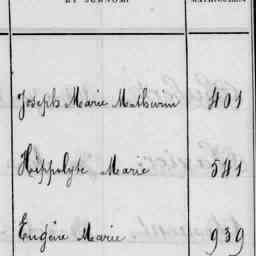 ET SURNOMS.
MATRICULES.
Joseph Marie Mathurin 401
Hippolyte Marie 541
Eugène Marie 939